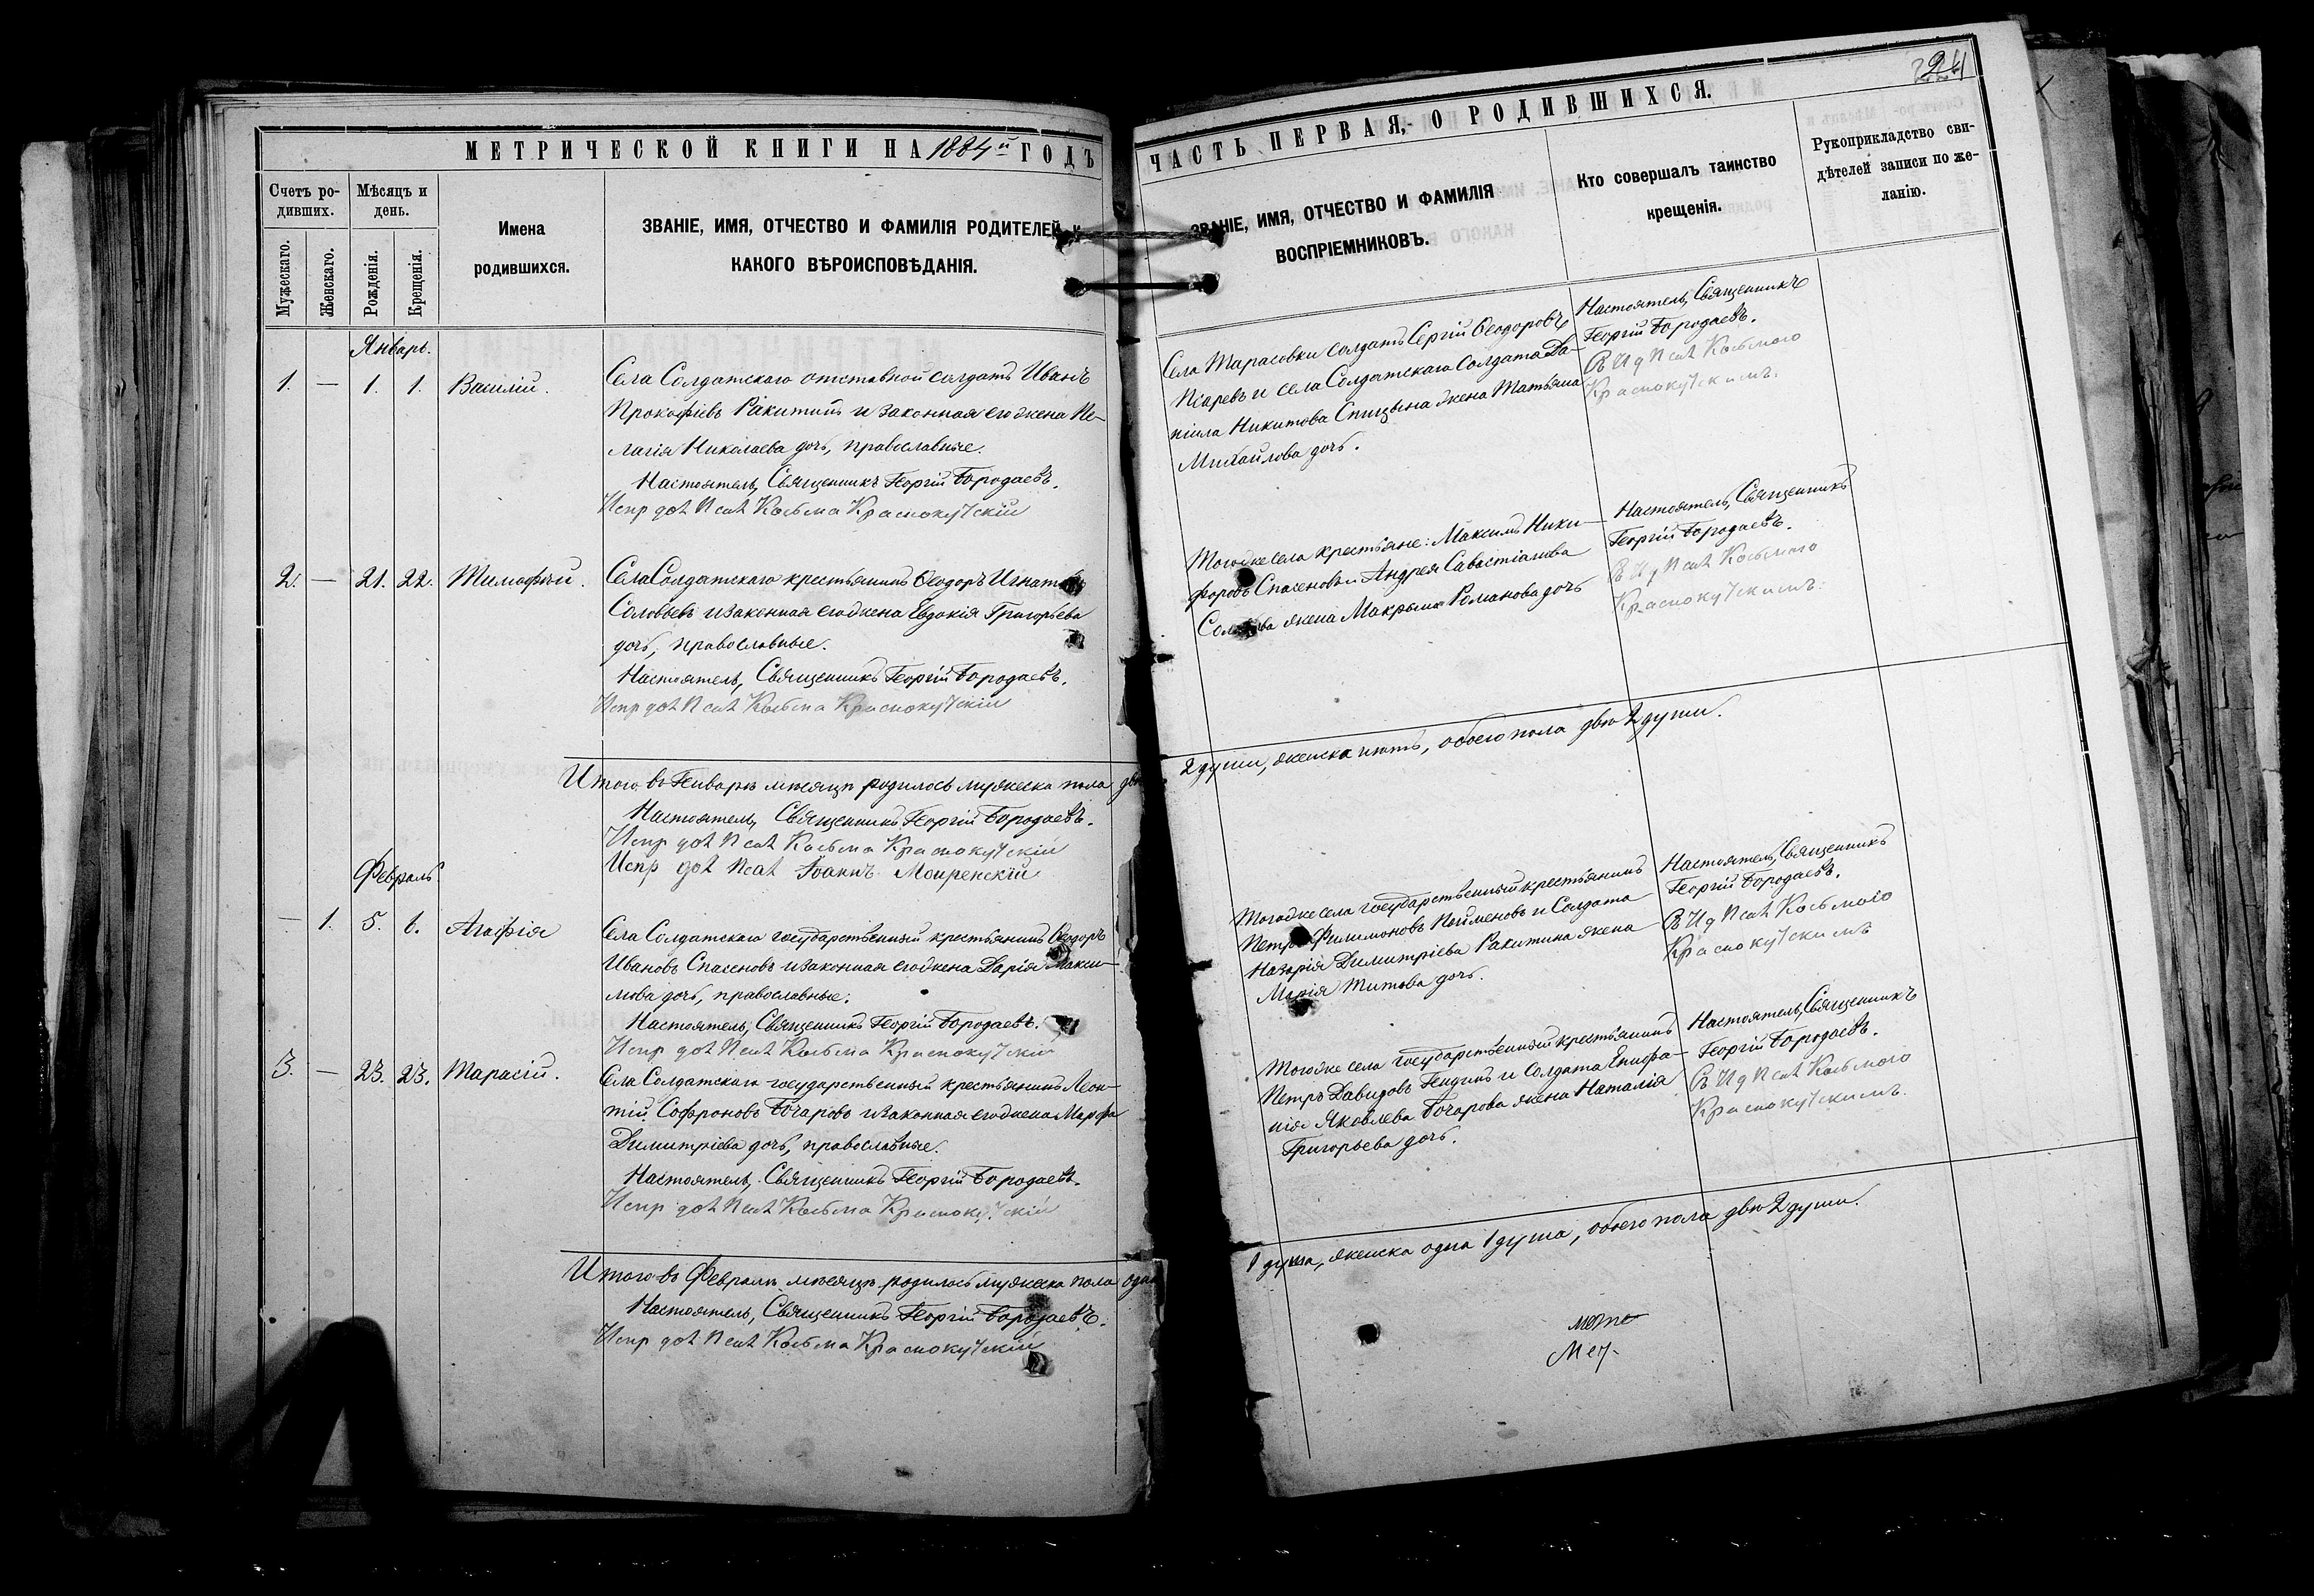 МЕТРИЧЕСКОЙ КНИГИ НА 1884й ГОДЪ
Счетъ ро-
дивших.
Мѣсяцъ и
день.
Мужескаго.
Женскаго.
Рожденія.
Крещенія.
Имена
родившихся.
ЗВАНІЕ, ИМЯ, ОТЧЕСТВО И ФАМИЛІЯ РОДИТЕЛЕЙ, И
КАКОГО ВѢРОИСПОВѢДАНІЯ.
Январь.
1. — 1. 1. Василій. Села Солдатскаго отставной солдатъ Иванъ
Прокофіевъ Ракитинъ и законная его жена Пе-
лагія Николаева дочь, православные.
Настоятель, Священникъ Георгій Бородаевъ.
Испр дол Псал Косьма Краснокутскій
2. — 21. 22. Тимофей. Села Солдатскаго крестьянинъ Ѳеодоръ Игнатовъ
Соловьевъ и законная его жена Евдокія Григорьева
дочь, православные.
Настоятель, Священникъ Георгій Бородаевъ.
Испр дол Псал Косьма Краснокутскій
Итого въ Генварѣ мѣсяцѣ родилось мужеска пола двѣ
Настоятель, Священникъ Георгій Бородаевъ.
Испр дол Псал Косьма Краснокутскій
Испр дол Псал Іоаннъ
Февраль.
— 1. 5. 6. Агафія Села Солдатскаго государственный крестьянинъ Ѳеодоръ
Ивановъ Спасеновъ и законная его жена Дарія Макси-
мова дочь, православные.
Настоятель, Священникъ Георгій Бородаевъ.
Испр дол Псал Косьма Краснокутскій
3. — 23. 23. Тарасій. Села Солдатскаго государственный крестьянинъ Леон-
тій Софроновъ Бочаровъ и законная его жена Марфа
Димитріева дочь, православные.
Настоятель, Священникъ Георгій Бородаевъ.
Испр дол Псал Косьма Краснокутскій
Итого въ Февралѣ мѣсяцѣ родилось мужеска пола одна
Настоятель, Священникъ Георгій Бородаевъ.
Испр дол Псал Косьма Краснокутскій
ЧАСТЬ ПЕРВАЯ, О РОДИВШИХСЯ.
ЗВАНІЕ, ИМЯ, ОТЧЕСТВО И ФАМИЛІЯ
ВОСПРІЕМНИКОВЪ.
Кто совершалъ таинство
крещенія.
Рукоприкладство сви-
дѣтелей записи по же-
ланію.
Села Тарасовки солдатъ Сергій Ѳеодоровъ
Писаревъ и села Солдатскаго солдата Да-
ніила Никитова Спицына жена Татьяна
Михайлова дочь.
Настоятель, Священникъ
Георгій Бородаевъ.
Съ И д Псал Косьмою
Краснокутскимъ.
Тогоже села крестьяне: Максимъ Ники-
форовъ Спасеновъ и Андрея Савастіанова
жена Макрина Романова дочь
Настоятель, Священникъ
Георгій Бородаевъ.
Съ И д Псал Косьмою
Краснокутскимъ.
2 души, женска нѣтъ, обоего пола двѣ 2 души.
Тогоже села государственный крестьянинъ
Петръ Филимоновъ Пойменовъ и Солдата
Назарія Димитріева Ракитина жена
Марія Титова дочь.
Настоятель, Священникъ
Георгій Бородаевъ.
Съ И д Псал Косьмою
Краснокутскимъ
Тогоже села государственный крестьянинъ
Петръ Давидовъ и солдата Епифа-
нія Яковлева Бочарова жена Наталія
Григорьева дочь.
Настоятель, Священникъ
Георгій Бородаевъ.
Съ И д Псал Косьмою
Краснокутскимъ.
1 душа, женска одна 1 душа, обоего пола двѣ 2 души.